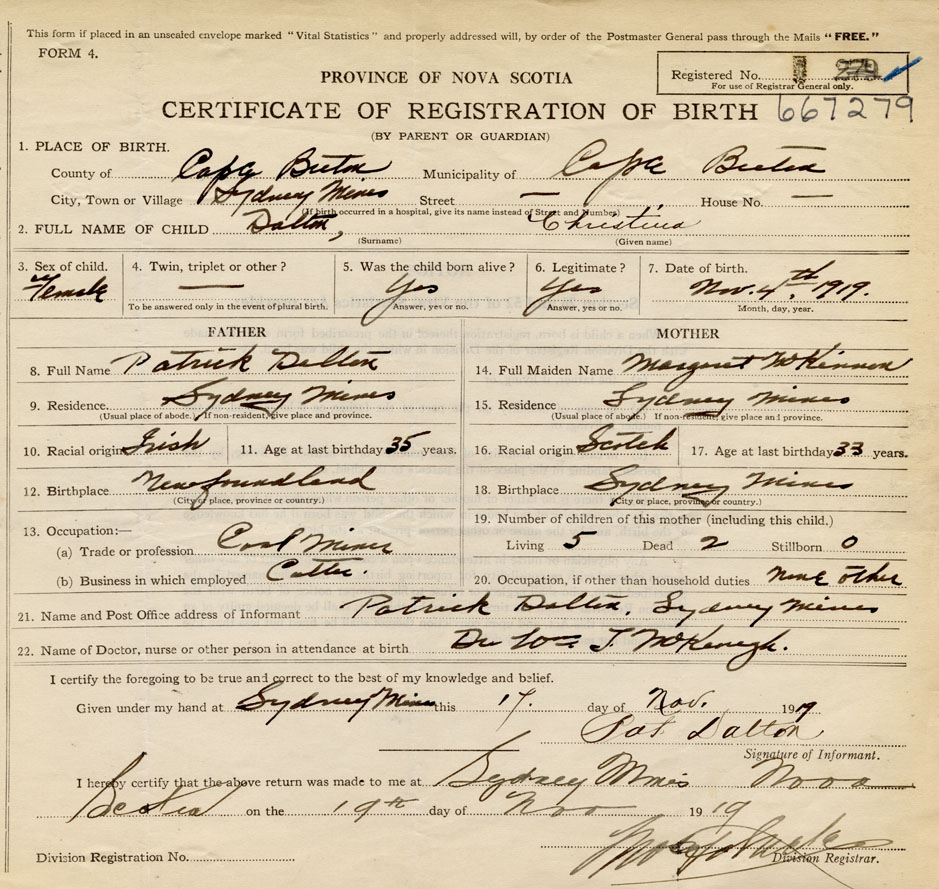 This form if placed in an unsealed envelope marked "Vital Statistics" and properly addressed will, by order of the Postmaster General pass through the Mails "FREE."
FORM 4.
Registered No.
For use of Registrar General only.
PROVINCE OF NOVA SCOTIA
CERTIFICATE OF REGISTRATION OF BIRTH 667279
(BY PARENT OR GUARDIAN)
1. PLACE OF BIRTH.
County of Cape Breton Municipality of Cape Breton
City, Town or Village Sydney Mines Street — House No. —
(If birth occurred in a hospital, give its name instead of Street and Number)
2. FULL NAME OF CHILD Dalton, Christina
(Surname) (Given name)
3. Sex of child. 4. Twin, triplet or other? 5. Was the child born alive? 6. Legitimate? 7. Date of birth.
Female — Yes Yes Nov. 4th, 1919.
To be answered only in the event of plural birth. Answer, yes or no. Answer, yes or no. Month, day, year.
FATHER MOTHER
8. Full Name Patrick Dalton 14. Full Maiden Name Margaret McKinnon
9. Residence Sydney Mines 15. Residence Sydney Mines
(Usual place of abode. If non-resident, give place and province. (Usual place of abode.) If non-resident, give place and province.
10. Racial origin Irish 11. Age at last birthday 35 years. 16. Racial origin Scotch 17. Age at last birthday 33 years.
12. Birthplace Newfoundland 18. Birthplace Sydney Mines
(City or place, province or country.) (City or place, province or country.)
13. Occupation:— 19. Number of children of this mother (including this child.)
(a) Trade or profession Coal Miner Living 5 Dead 2 Stillborn 0
(b) Business in which employed Cutter. 20. Occupation, if other than household duties none other
21. Name and Post Office address of Informant Patrick Dalton, Sydney Mines
22. Name of Doctor, nurse or other person in attendance at birth Dr Wm J. McKeough.
I certify the foregoing to be true and correct to the best of my knowledge and belief.
Given under my hand at Sydney Mines this 17. day of Nov. 1919
Pat Dalton
Signature of Informant.
I hereby certify that the above return was made to me at Sydney Mines Nova
Scotia on the 19th day of Nov 1919
Division Registration No. Division Registrar.